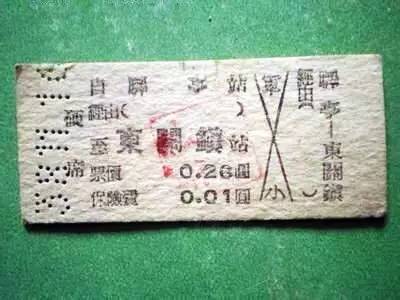 自 驛 亭 站
經由( )
至 東關鎮 站
票價 0.26圓
保險費 0.01圓
硬席
小
經由( )
驛亭—東關鎮